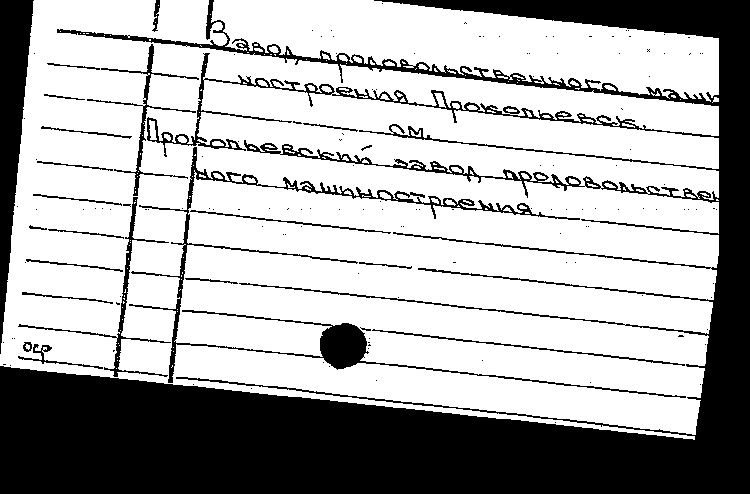 Завод продовольственного маши
ностроения. Прокопьевск.
см.
Прокопьевский завод продовольствен
ного машиностроения.
оср